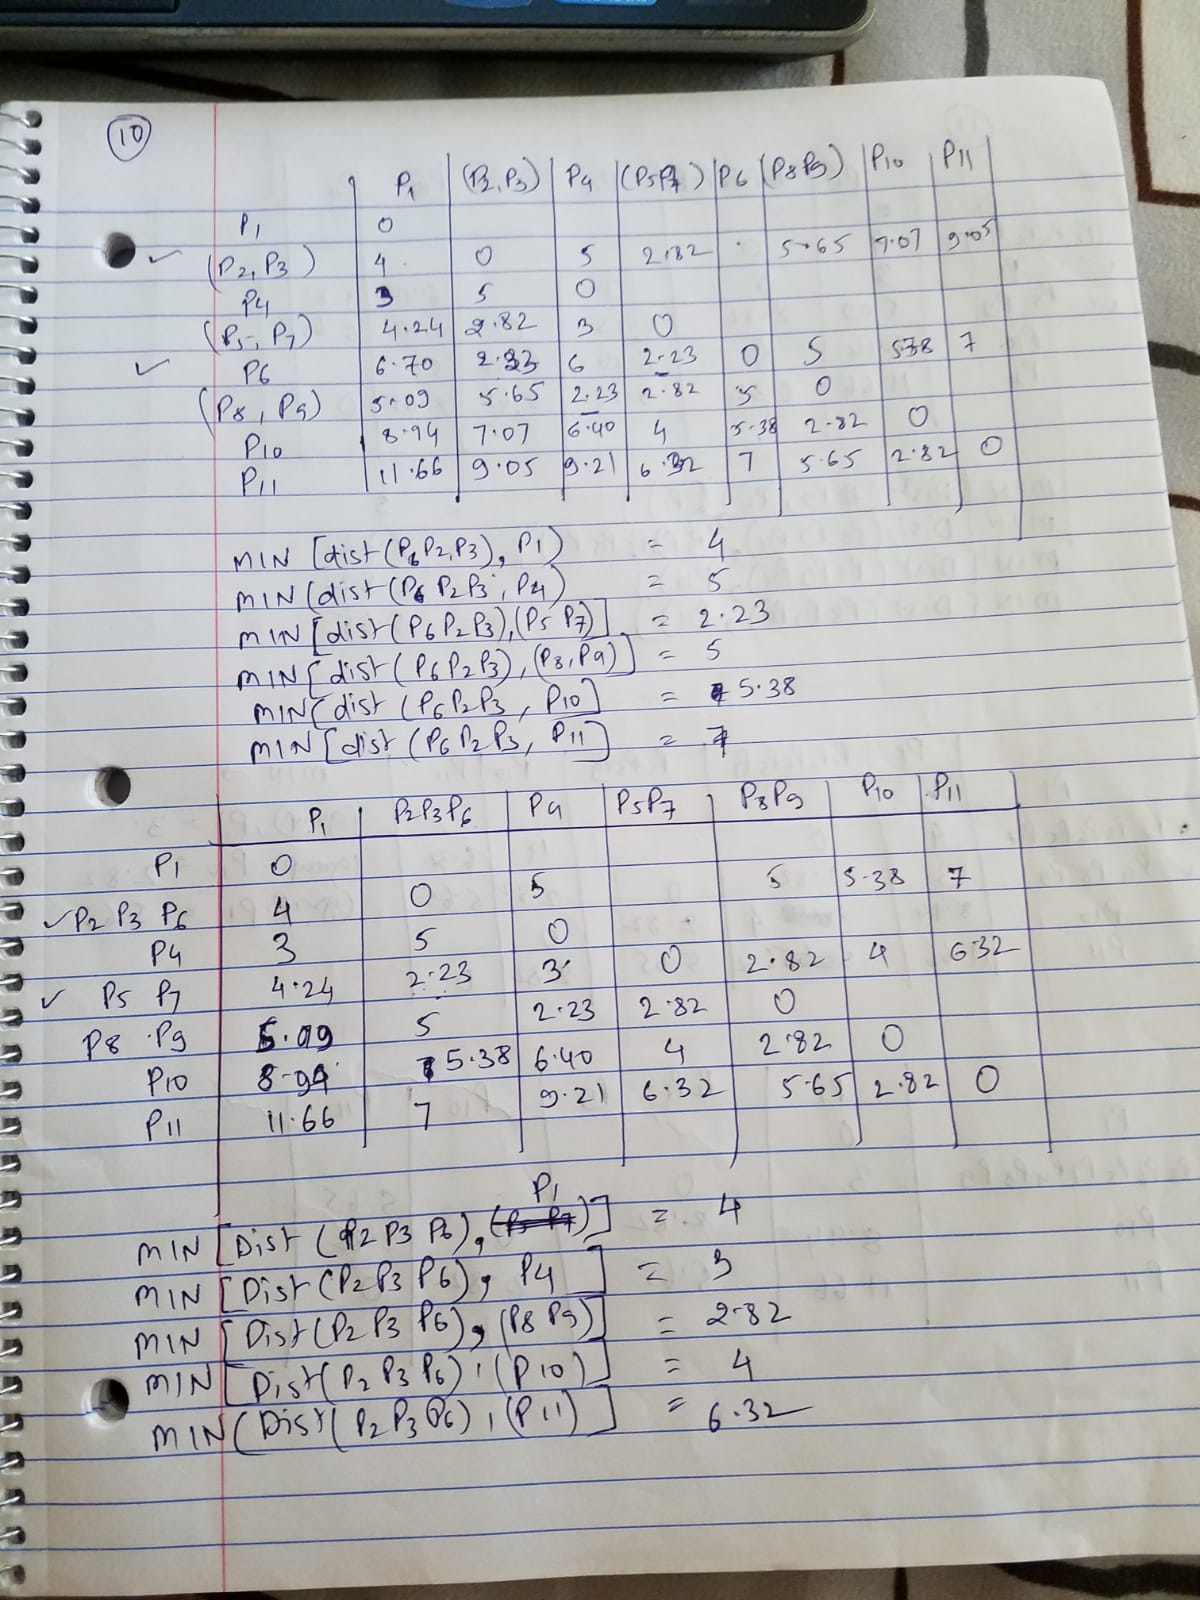 10
P1 | (P2, P3) | P4 | (P5P7) | P6 | (P8P9) | P10 | P11
P1 0
(P2, P3) 4 0 5 2.82 5.65 7.07 9.05
P4 3 5 0
(P5, P7) 4.24 2.82 3 0
P6 6.70 2.23 6 2.23 0 5 5.38 7
(P8, P9) 5.09 5.65 2.23 2.82 5 0
P10 8.94 7.07 6.40 4 5.38 2.82 0
P11 11.66 9.05 9.21 6.32 7 5.65 2.82 0
MIN [dist (P6 P2, P3), P1) = 4
MIN (dist (P6 P2P3, P4) = 5
MIN [dist (P6 P2P3), (P5 P7)] = 2.23
MIN [dist (P6 P2P3), (P8, P9)] = 5
MIN (dist (P6 P2P3, P10] = 5.38
MIN [dist (P6 P2 P3, P11] = 7
P1 | P2P3P6 | P4 | P5P7 | P8P9 | P10 | P11
P1 0
P2 P3 P6 4 0 5 5 5.38 7
P4 3 5 0
P5 P7 4.24 2.23 3 0 2.82 4 6.32
P8 P9 5.09 5 2.23 2.82 0
P10 8.94 5.38 6.40 4 2.82 0
P11 11.66 7 9.21 6.32 5.65 2.82 0
MIN [Dist (P2 P3 P6), P1] = 4
MIN [Dist (P2 P3 P6), P4] = 3
MIN [Dist (P2 P3 P6), (P8 P9)] = 2.82
MIN [Dist (P2 P3 P6), (P10)] = 4
MIN (Dist (P2 P3 P6), (P11)] = 6.32